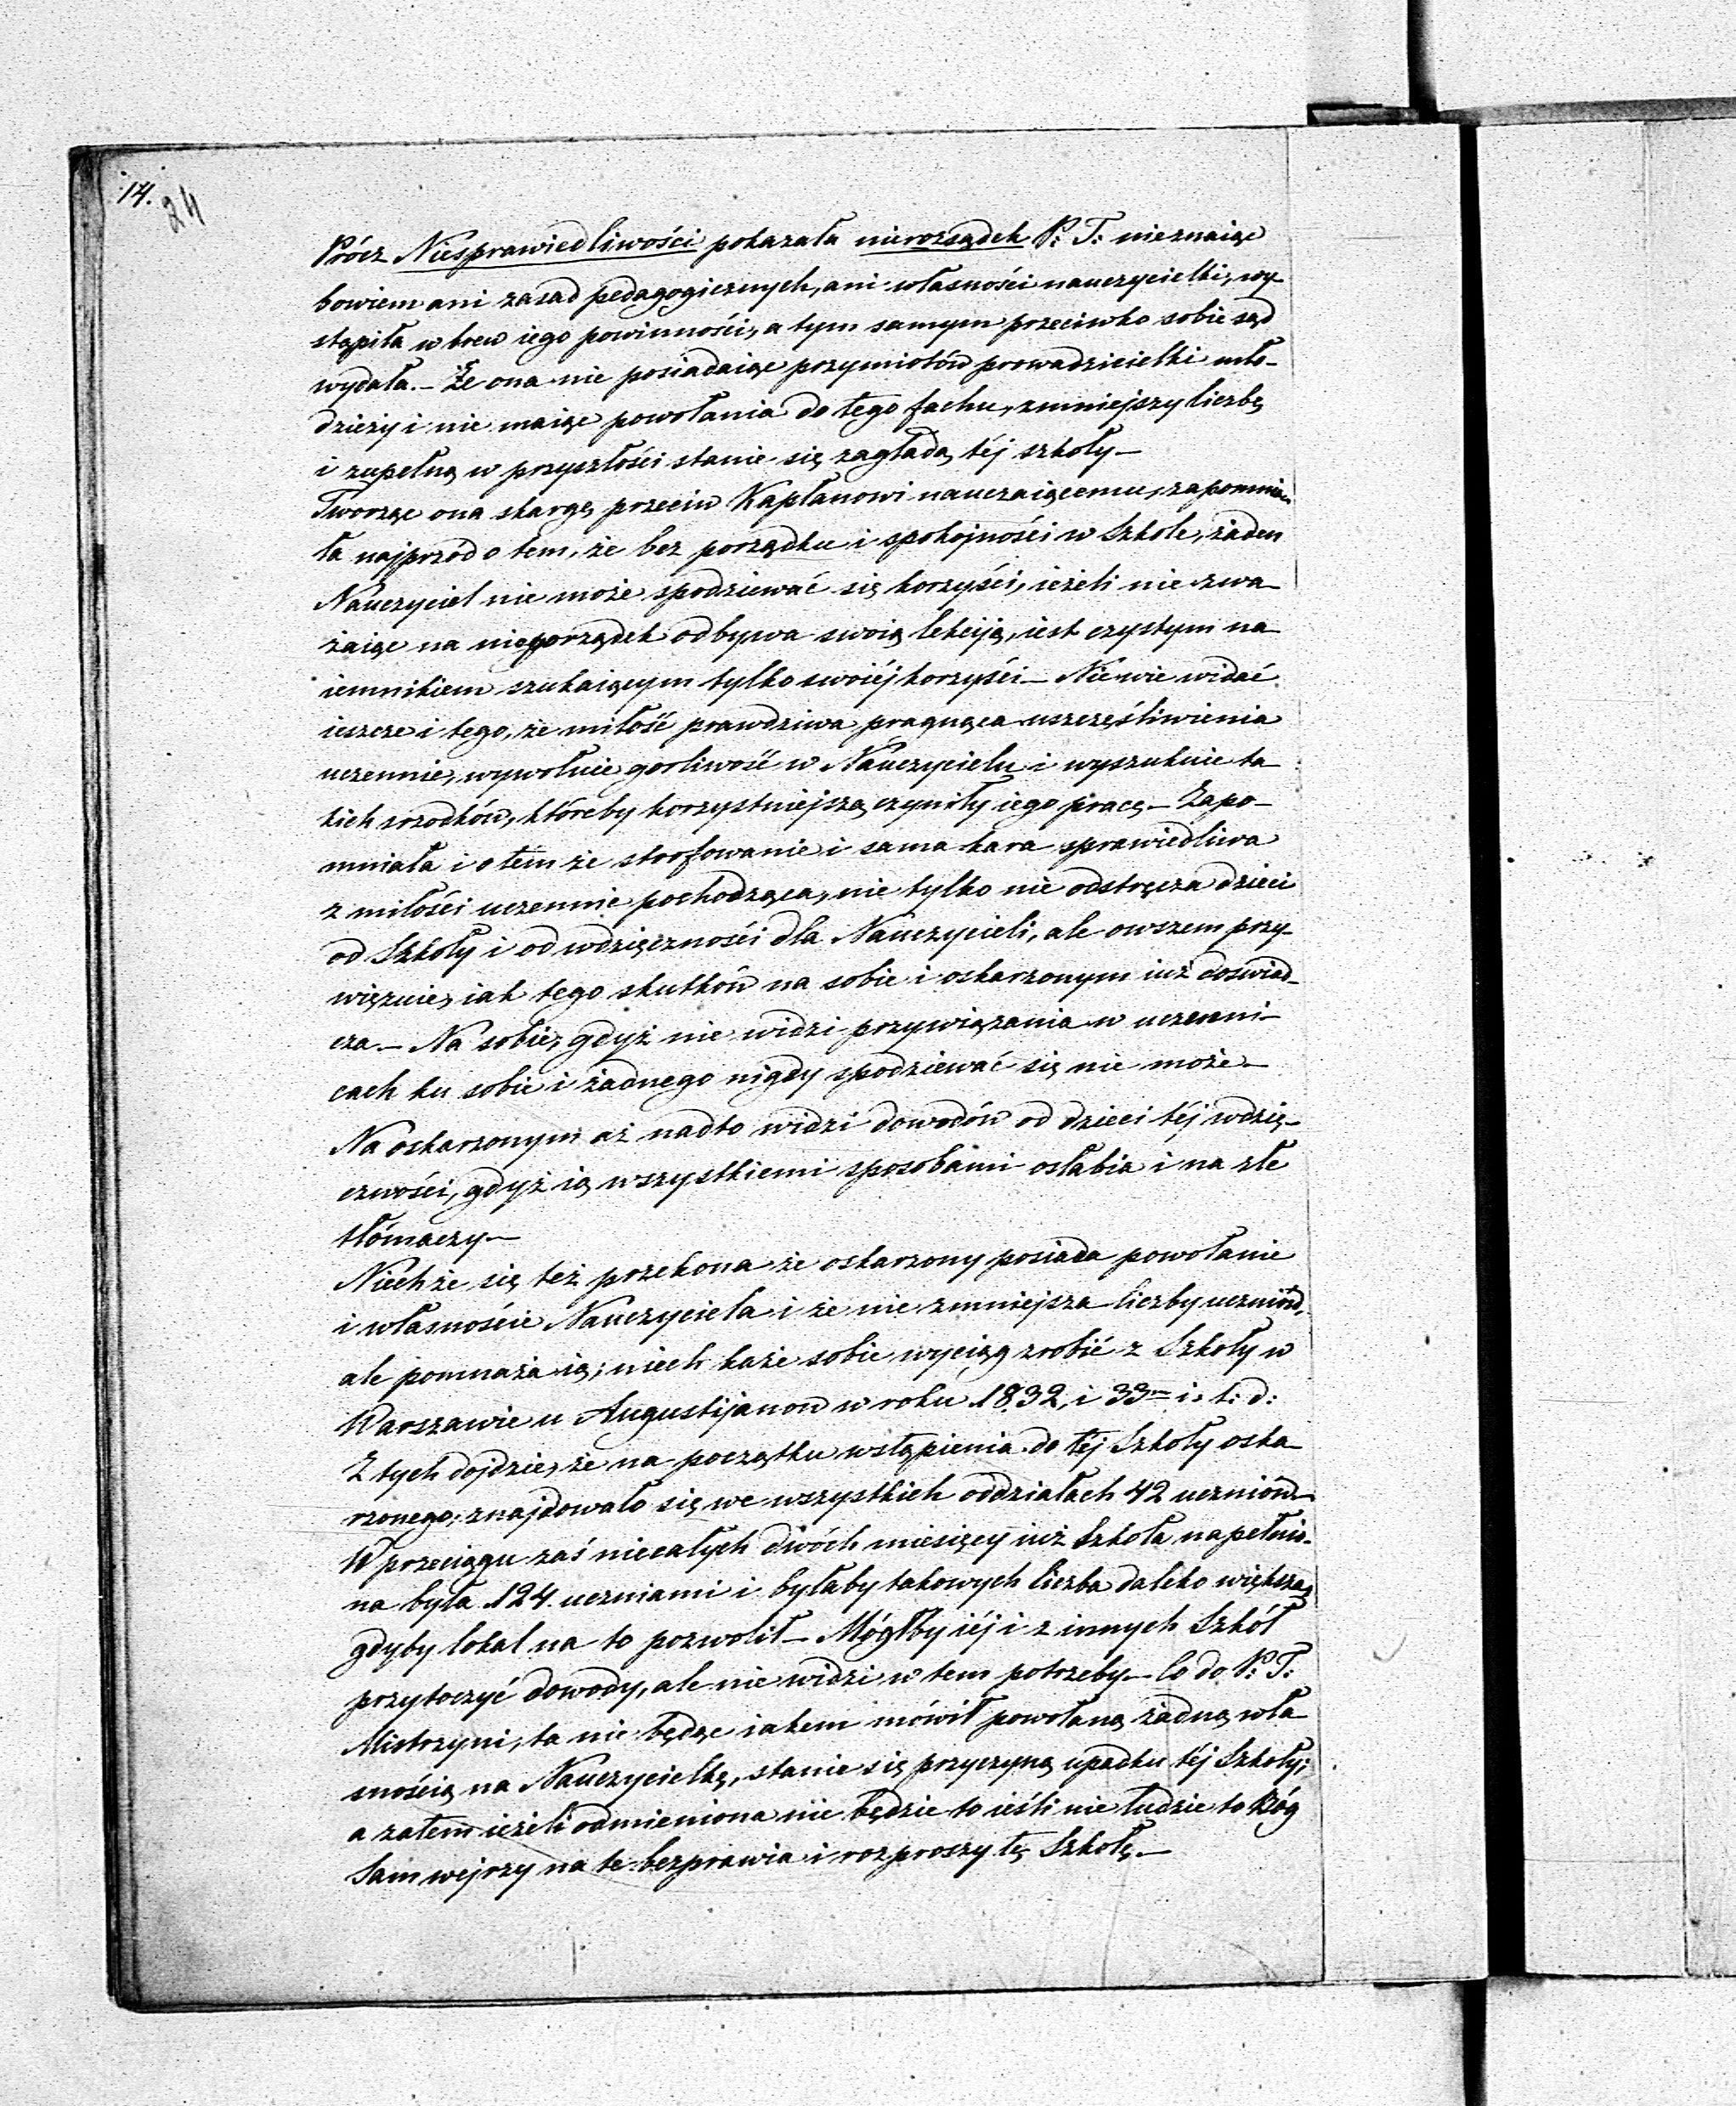 14.
24
Prócz Niesprawiedliwości pokazała nierozsądek P: T: nieznaiąc
bowiem ani zasad pedagogicznych, ani własności nauczycielki, wy-
stąpiła wbrew iego powinności, a tym samym przeciwko sobie sąd
wydała. – Że ona nie posiadaiąc przymiotów prowadzicielki mło-
dzieży i nie maiąc powołania do tego fachu, zmniejszy liczbę,
i zupełną w przyszłości stanie się zagładą téj szkoły –
Tworząc ona skargę przeciw Kapłanowi nauczaiącemu, zapomnia-
ła najprzód o tem, że bez porządku i spokojności w Szkole, żaden
Nauczyciel nie może spodziewać się korzyści, ieżeli nie zwa-
żaiąc na nieporządek odbywa swoią lekciją, iest czystym na
iemnikiem szukaiącym tylko swoiéj korzyści – Niewie widać
ieszcze i tego, że miłość prawdziwa pragnąca uszczęśliwienia
uczennic, wywołuie gorliwość w Nauczycielu i wyszukuie ta
kich srzodków, któreby korzystniejszą czyniły iego pracę. – Zapo-
mniała i o tem że strofowanie i sama kara sprawiedliwa
z miłości uczennic pochodząca, nie tylko nie odstręcza dzieci
od Szkoły i od wdzięczności dla Nauczycieli, ale owszem przy-
więzuie, iak tego skutków na sobie i oskarzonym iuż doświad-
cza. – Na sobie, gdyż nie widzi przywiązania w uczenni-
cach ku sobie i żadnego nigdy spodziewać się nie może –
Na oskarzonym aż nadto widzi dowodów od dzieci téj wdzię-
czności, gdyż ią wszystkiemi sposobami osłabia i na złe
tłómaczy –
Niechże się też przekona że oskarzony posiada powołanie
i własnoście Nauczyciela i że nie zmniejsza liczby uczniów,
ale pomnaża ią; niech każe sobie wyciąg zrobić z Szkoły w
Warszawie u Augustijanow w roku 1832, i 33m i. t: d:
Z tych dojdzie, że na początku wstąpienia do téj Szkoły oska-
rzonego; znajdowało się we wszystkich oddziałach 42 uczniów –
W przeciągu zaś niecałych dwóch miesięcy iuż Szkoła napełnio-
na była 124 uczniami i byłaby takowych liczba daleko większa,
gdyby lokal na to pozwolił – Mógłby iéj i z innych Szkół
przytoczyć dowody, ale nie widzi w tem potrzeby – Co do P: T:
Mistrzyni, ta nie będąc iakem mówił powołaną żadną wła
snością na Nauczycielkę, stanie się przyczyną upadku téj Szkoły;
a zatem ieżeli odmieniona nie będzie to ieśli nie ludzie to Bóg
Sam wejrzy na te bezprawia i rozproszy tę Szkołę. –